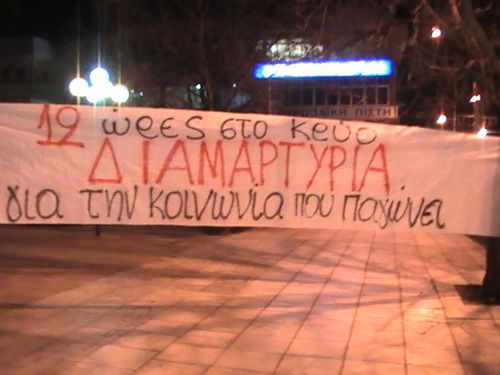 ΠΙΣΤΗ
12 ώρες στο κρύο
ΔΙΑΜΑΡΤΥΡΙΑ
για την κοινωνία που παγώνει